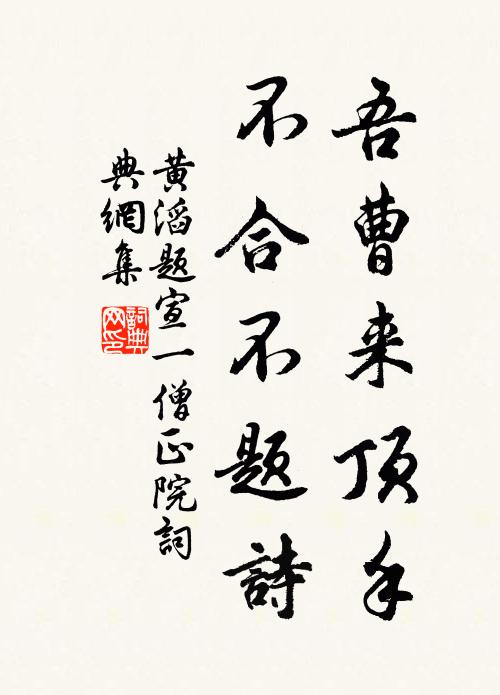 吾曹来顶手
不合不题詩
黄滔题宣一僧正院詞
典網集
詞典网印